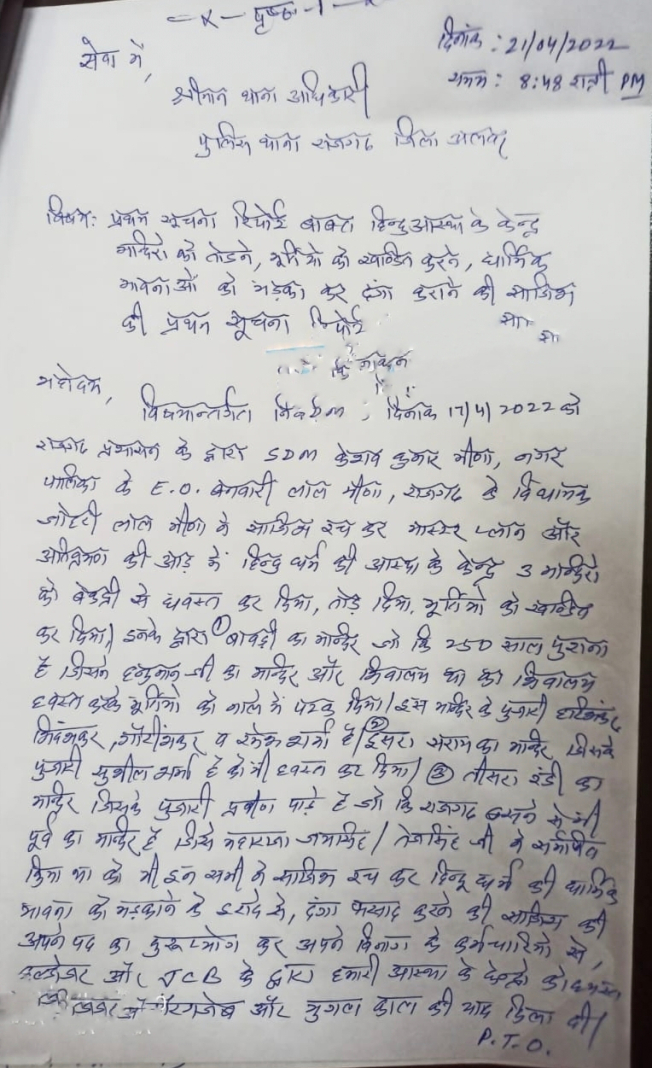 = x - पृष्ठ - 1 - x
दिनांक : 21/04/2022
समय : 8:48 रात्री PM
सेवा में,
श्रीमान थाना अधिकारी
पुलिस थाना राजगढ जिला अलवर
विषय: प्रथम सूचना रिपोर्ट बाबत हिन्दु आस्था के केन्द्र
मन्दिरो को तोडने, मूर्तियो को खण्डित करने, धार्मिक
भावनाओं को भड़का कर दंगा कराने की साजिश
की प्रथम सूचना रिपोर्ट
महोदय,
विषयान्तर्गत निवेदन, दिनांक 17/4/2022 को
राजगढ प्रशासन के द्वारा SDM केशव कुमार मीणा, नगर
पालिका के E.O. बनवारी लाल मीणा, राजगढ के विधायक
जोहरी लाल मीणा ने साजिश रच कर मास्टर प्लान और
अतिक्रमण की आड़ में हिन्दु धर्म की आस्था के केन्द्र 3 मन्दिरो
को बेदर्दी से ध्वस्त कर दिया, तोड़ दिया, मूर्तियो को खण्डित
कर दिया। इनके द्वारा ① बावड़ी का मन्दिर जो कि 250 साल पुराना
है जिसमे हनुमान जी का मन्दिर और शिवालय था का शिवालय
ध्वस्त करके मूर्तियो को नाले में पटक दिया। इस मन्दिर के पुजारी हरिशंकर,
शिवशंकर, गौरीशंकर व रमेश शर्मा है। ② दूसरा सराय का मन्दिर जिसके
पुजारी सुशील शर्मा है को भी ध्वस्त कर दिया। ③ तीसरा का
मन्दिर जिसके पुजारी प्रवीण पाड़े है जो कि राजगढ बसने से भी
पूर्व का मन्दिर है जिसे महाराजा जयसिंह / तेजसिंह जी ने समर्पित
किया था को भी इन सभी ने साजिश रच कर हिन्दू धर्म की धार्मिक
भावना को भड़काने के इरादे से, दंगा फसाद करने की साजिश की
अपने पद का दुरूपयोग कर अपने विभाग के कर्मचारियो से,
बुल्डोजर और JCB के द्वारा हमारी आस्था के केन्द्रो को ध्वस्त
औरंगजेब और मुगल काल की याद दिला दी।
P.T.O.